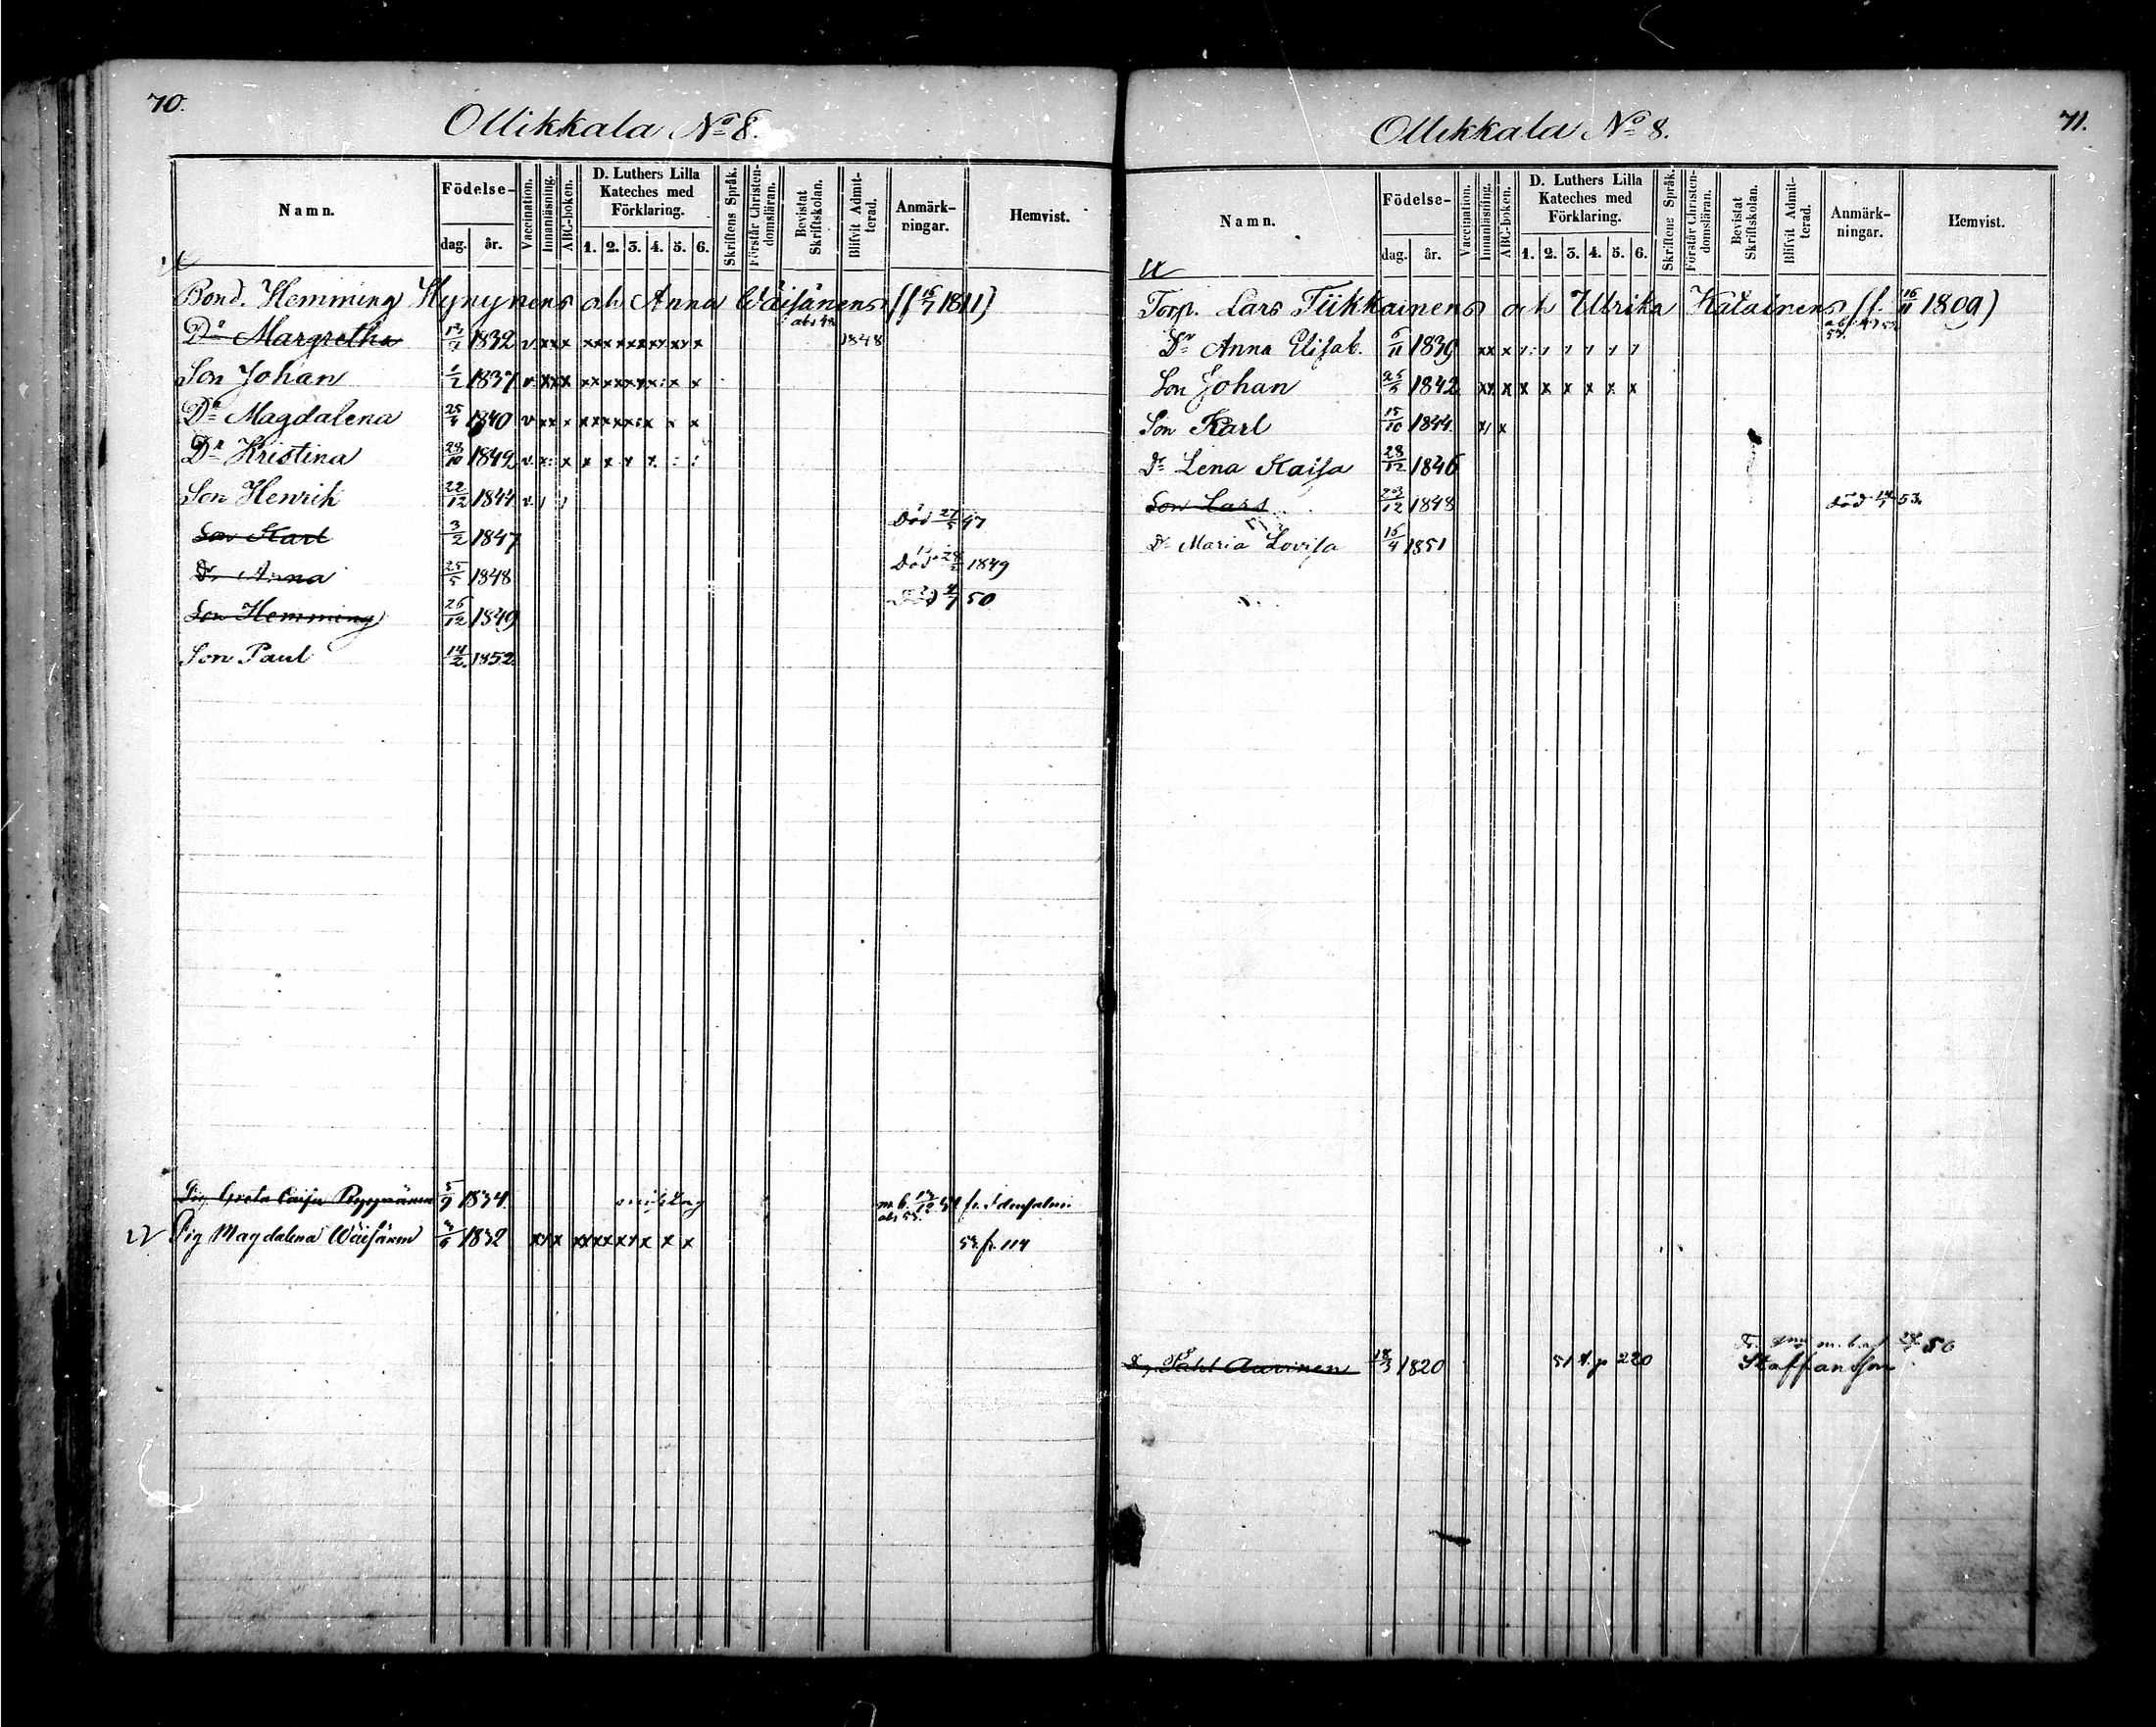 70.
Ollikkala No 8.
Namn. Födelse- dag. år. Vaccination. Innanläsning. ABC-boken. D. Luthers Lilla Kateches med Förklaring. 1. 2. 3. 4. 5. 6. Skriftens Språk. Förstår Christendomsläran. Bevistat Skriftskolan. Blifvit Admitterad. Anmärkningar. Hemvist.
Bond. Hemming Hynynens och Anna Wäisänens (f. 1811)
Dr Margretha 1832 v. xxx 1848
Son Johan 1/2 1837 v. xxx
Dr Magdalena 1840 v
Dr Kristina 1842 v. x x x x
Son Henrik 22/12 1844 v.
Son Karl 3/2 1847 död 47
Dr Anna 25/5 1848 död 1849
Son Hemming 26/12 1849 50
Son Paul 14/2 1852
Pig. Greta Caisa 5/9 1834 fr. Idensalmi
Pig Magdalena Wäisänen 1832 xxx x x 53. fr. 114
71.
Ollikkala No 8.
Namn. Födelse- dag. år. Vaccination. Innanläsning. ABC-boken. D. Luthers Lilla Kateches med Förklaring. 1. 2. 3. 4. 5. 6. Skriftens Språk. Förstår Christendomsläran. Bevistat Skriftskolan. Blifvit Admitterad. Anmärkningar. Hemvist.
Torp. Lars Tiikkainens och Ulrika Katainens (f. 16/11 1809)
Dr Anna Elisab. 6/11 1839 xx x
Son Johan 1842 xx x x x x x x x
Son Karl 15/10 1844 x
Dr Lena Kaisa 28/12 1846
Son Lars 23/12 1848 död 53.
Dr Maria Lovisa 16/4 1851
Påhl Auvinen 18/3 1820 51 p 220 50
Staffansson